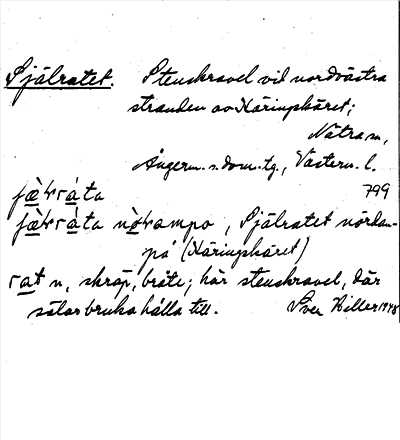 Själratet. Stenskravel vid nordvästra
stranden av Käringskäret;
Nätra sn,
Ångerm. s. dom. tg., Västern. l.
799
ratàta
nòrampo, Själratet nordan-
på (Käringskäret)
rat n, skräp, bråte; här stenskravel, där
sälar bruka hålla till. Sven Hiller 1948